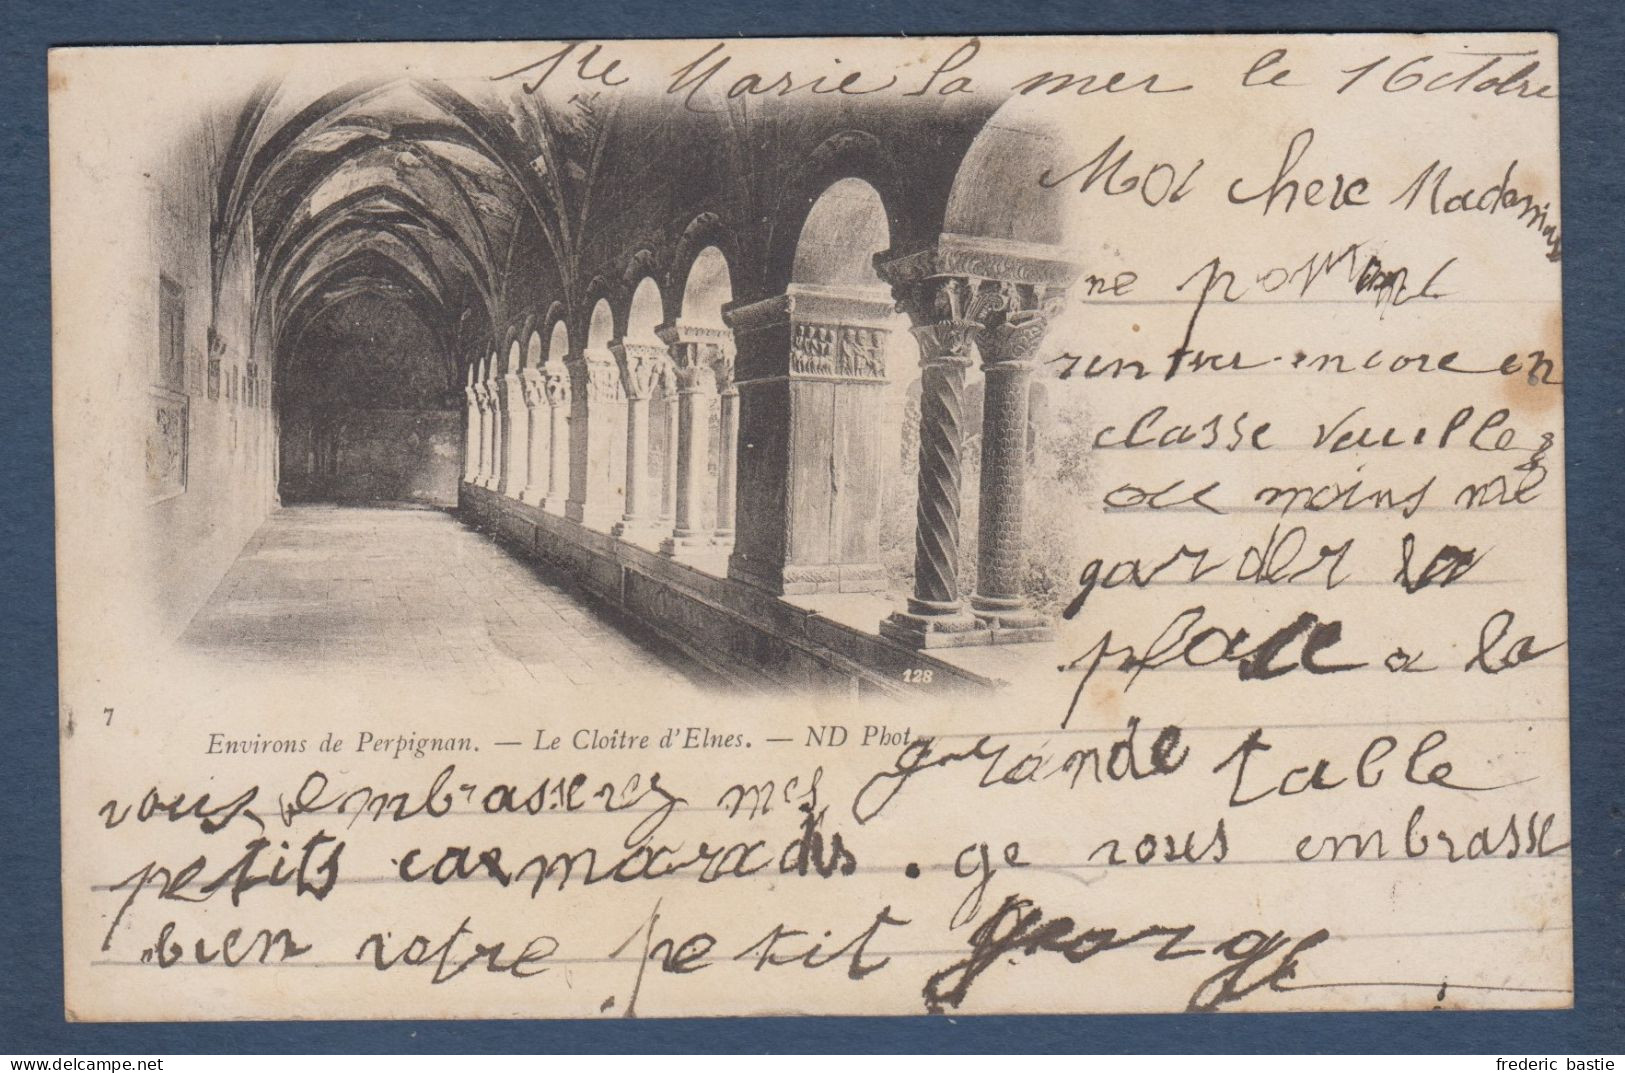 Ste Marie la mer le 1 Octobre
Moi chere
ne pouvant
rentrer encore en
classe veuillez
au moins me
garder la
place a la
128
7
Environs de Perpignan. — Le Cloître d'Elnes. — ND Phot.
grande table
vous embasserez mes
petits camarades . ge vous embrasse
bien votre petit george
frederic bastie
www.delcampe.net